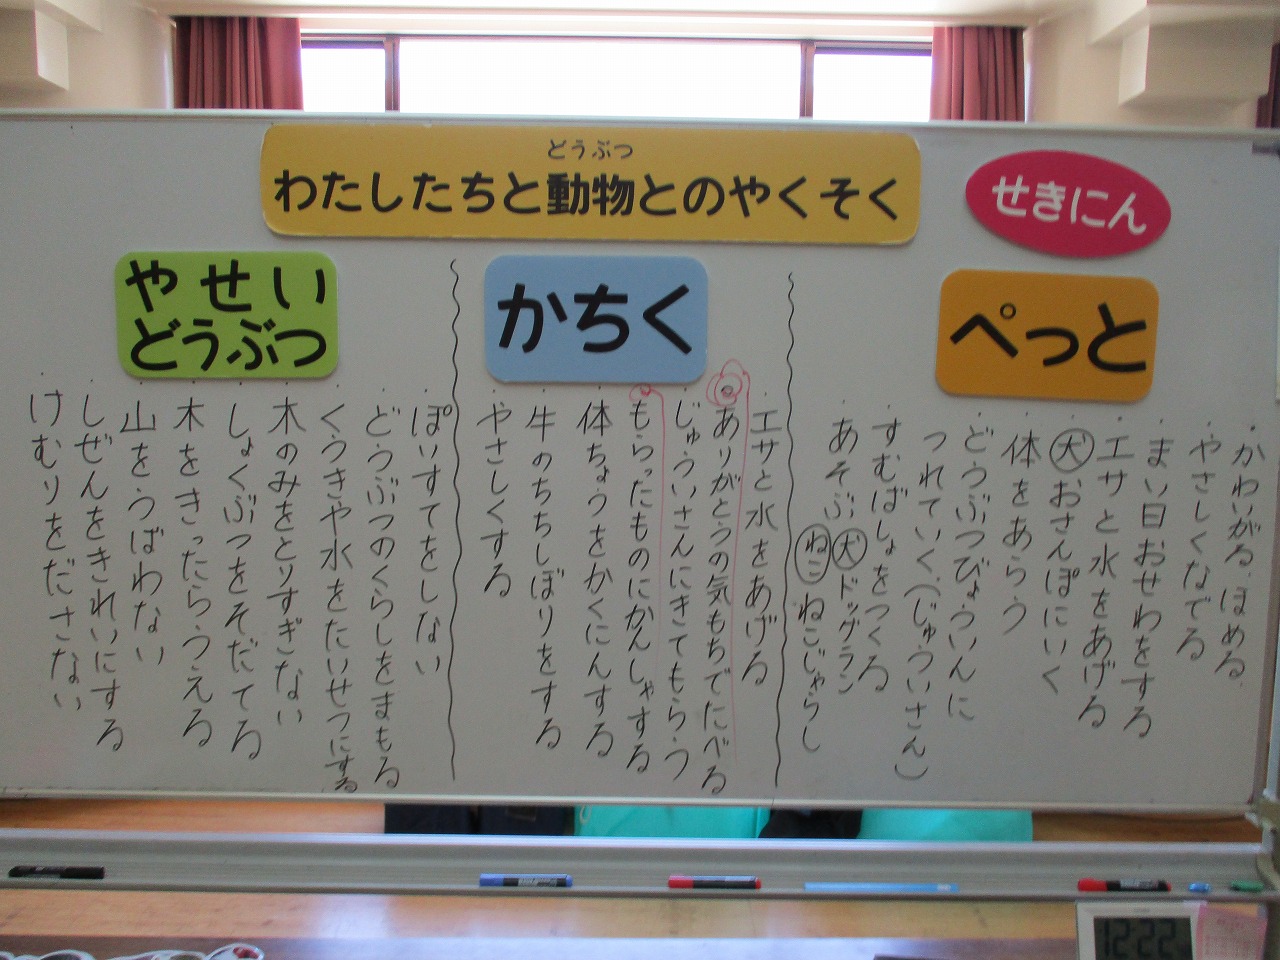 どうぶつ
わたしたちと動物とのやくそく
せきにん
ぺっと
・かわいがる、ほめる
・やさしくなでる
・まい日おせわをする
・エサと水をあげる
・犬おさんぽにいく
・体をあらう
・どうぶつびょういんに
つれていく(じゅういさん)
・すむばしょをつくる
・あそぶ 犬 ドッグラン
ねこ ねこじゃらし
かちく
・エサと水をあげる
・ありがとうの気もちでたべる
・じゅういさんにきてもらう
・もらったものにかんしゃする
・体ちょうをかくにんする
・牛のちちしぼりをする
・やさしくする
やせい
どうぶつ
・ぽいすてをしない
・どうぶつのくらしをまもる
・くうきや水をたいせつにする
・木のみをとりすぎない
・しょくぶつをそだてる
・木をきったらうえる
・山をうばわない
・しぜんをきれいにする
・けむりをださない
12:22